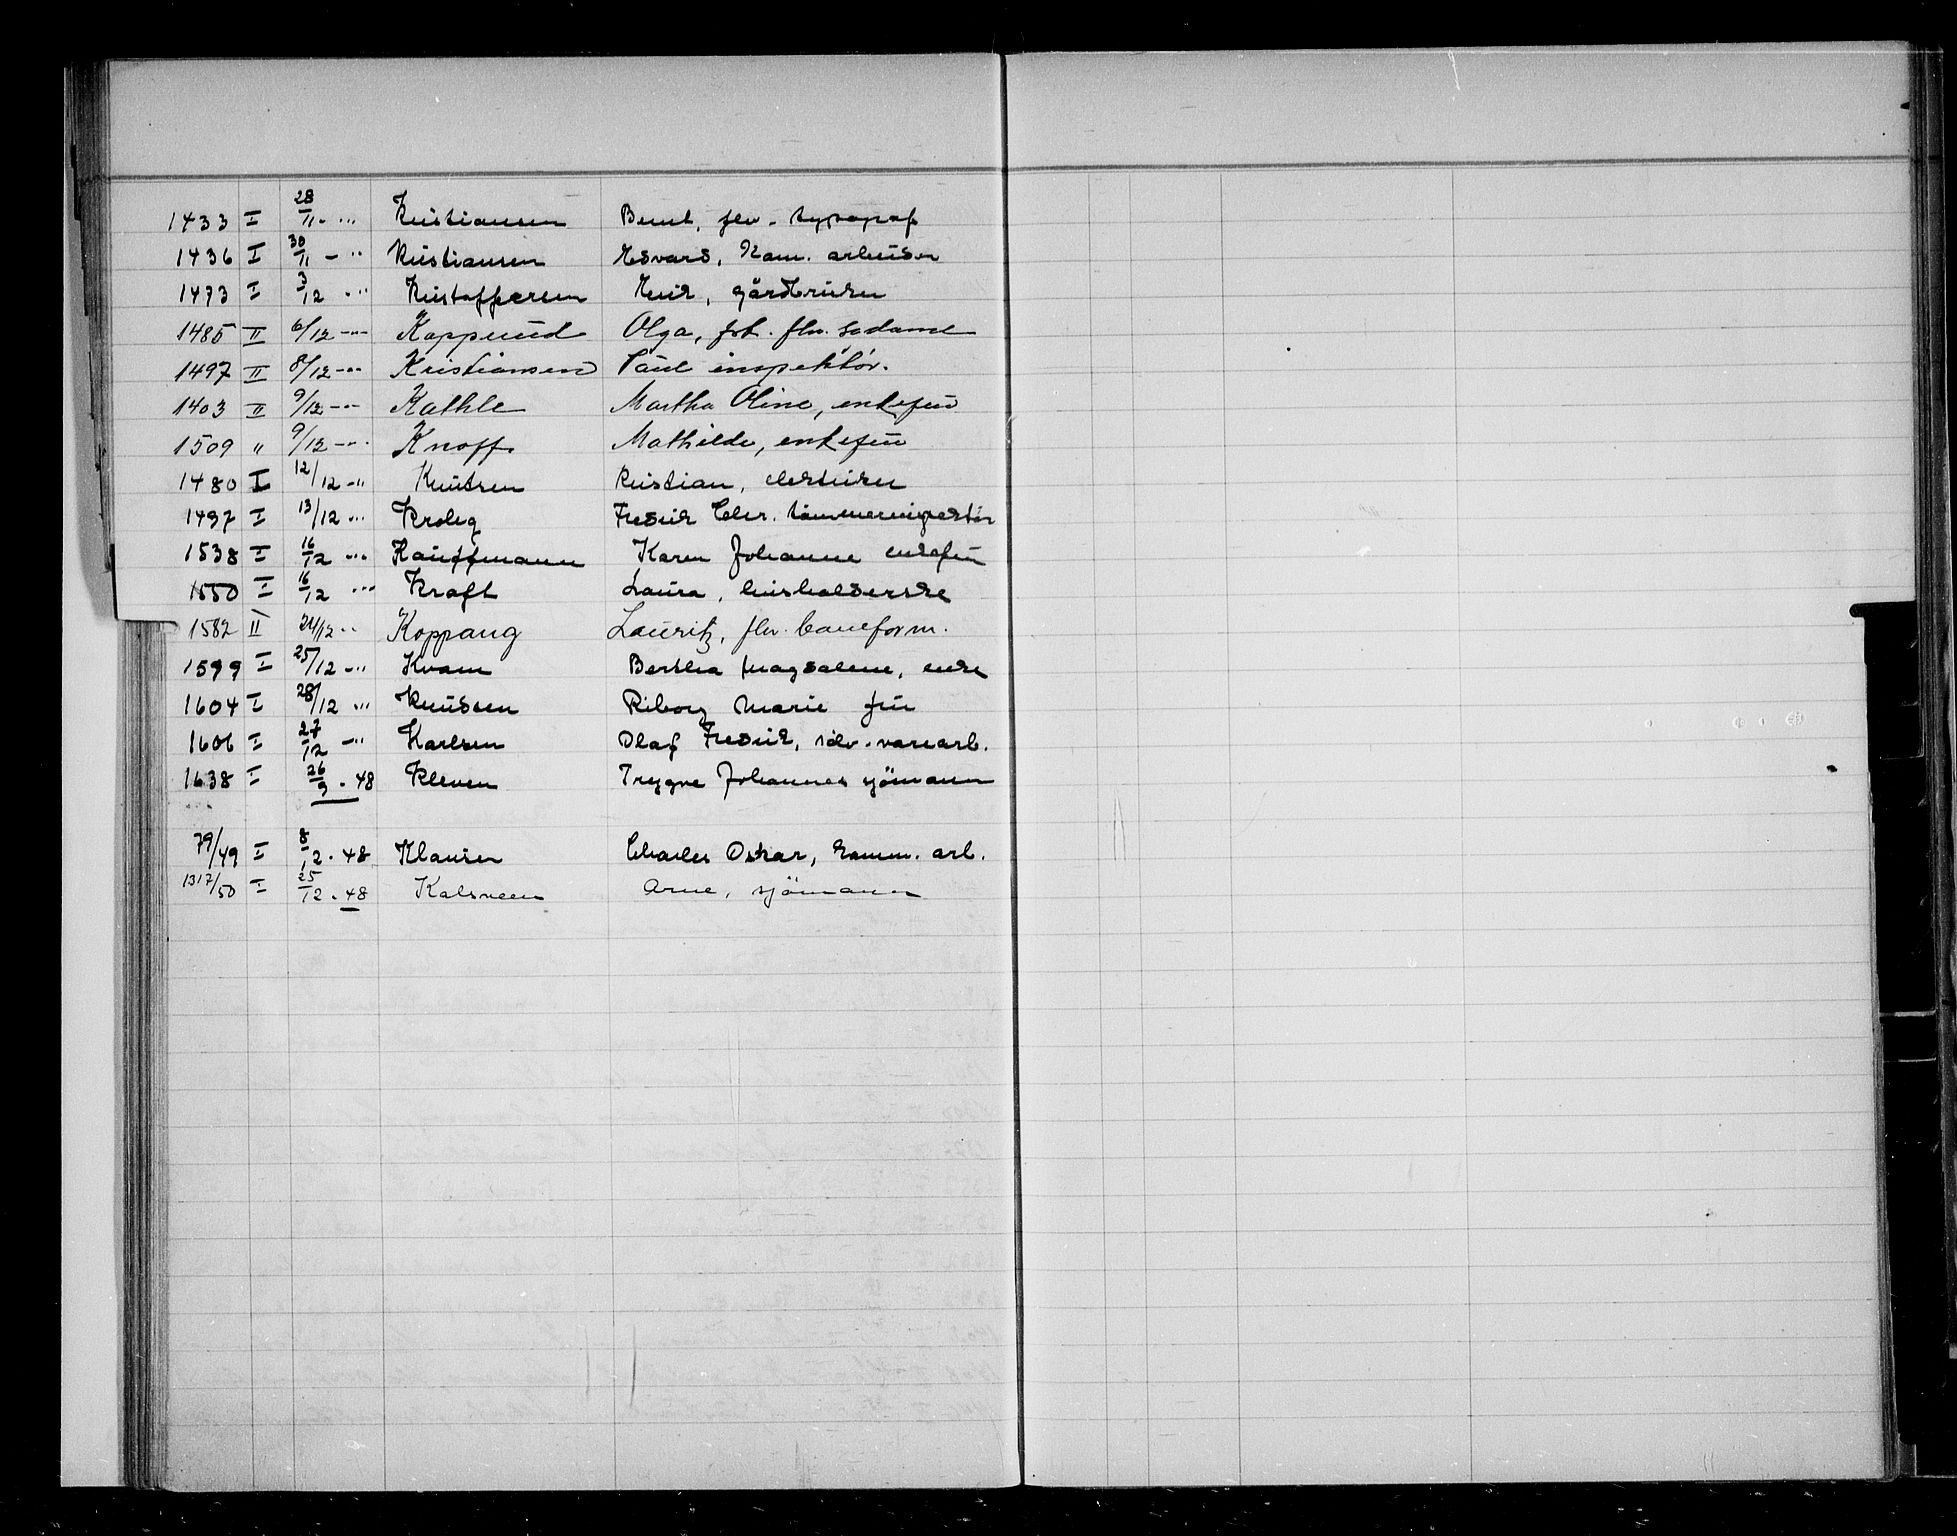 1433 I 28/11 - ... Kristiansen Bernt, flv. typograf
1436 I 30/11 - ... Kristiansen Edvard, Kom. arbeider
1473 I 3/12 - ... Kristoffersen Henrik, gårdbruker
1485 II 6/12 - ... Kopperud Olga, fhv.
1497 II 8/12 - ... Kristiansen Paul inspektör.
1403 II 9/12 - ... Kathle Martha Oline, enkefru
1509 " 9/12 - ... Knoff Mathilde, enkefru
1480 I 12/12 - " Knutsen Kristian, elektriker
1497 I 13/12 ... Fredrik Chr. tömmerinspektör
1538 I 16/12 ... Kauffmann Karen Johanne enkefru
1550 I 16/12 ... Kraft Laura, husholderske
1582 II 24/12 - .. Koppang Lauritz, fhv. baneform.
1599 I 25/12 - " Kvam Berthea Magdalene, enke
1604 I 28/12 ... Knudsen Riborg Marie fru
1606 I 27/12 - " Karlsen Olaf Fredrik, sölv.varearb.
1638 I 26/9 - 48 Kleven Trygve Johannes sjömann
79/49 I 8/12 - 48 Klausen Charles Oskar, komm. arb.
1317/50 I 25/12 - 48 Kalsveen Arne, sjömann